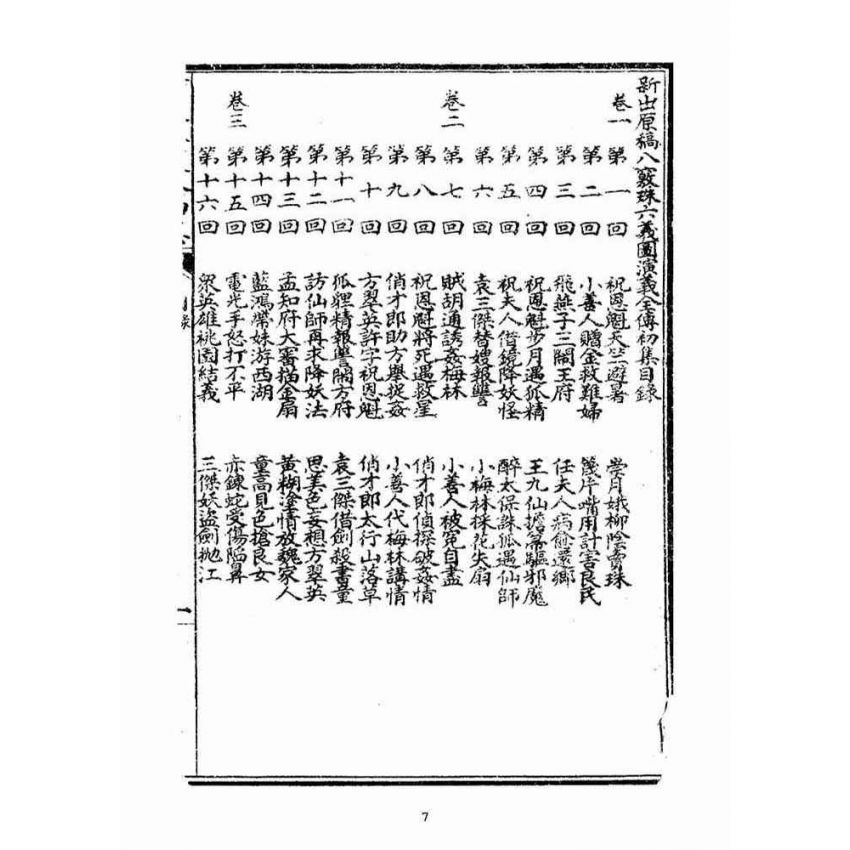 新出原稿八竅珠六義圖演義全傳初集目錄
卷一
第一回 祝恩魁天竺避暑 營月娥柳陰賣珠
第二回 小善人贈金救難婦 篾片嘴用計害良民
第三回 飛燕子三鬧王府 任夫人病愈還鄉
第四回 祝恩魁步月遇狐精 王九仙擔篙驅邪魔
第五回 祝夫人借鏡降妖怪 醉太保誅狐遇仙師
第六回 袁三傑替嫂報讐 小梅林採花失扇
卷二
第七回 賊胡通誘姦梅林 小善人被冤自盡
第八回 祝恩魁將死遇救星 俏才郎偵探破姦情
第九回 俏才郎助方舉捉姦 小善人代梅林講情
第十回 方翠英許字祝恩魁 俏才郎太行山落草
第十一回 狐貍精報讐鬧方府 袁三傑借劍殺畫童
第十二回 訪仙師再求降妖法 思美色妄想方翠英
第十三回 孟知府大審描金扇 黃糊塗情放魏家人
第十四回 藍鴻帶妹游西湖 童高見色搶良女
卷三
第十五回 電光手怒打不平 赤鍊蛇受傷陷鼻
第十六回 衆英雄桃園結義 三傑妖盜劍拋江
7